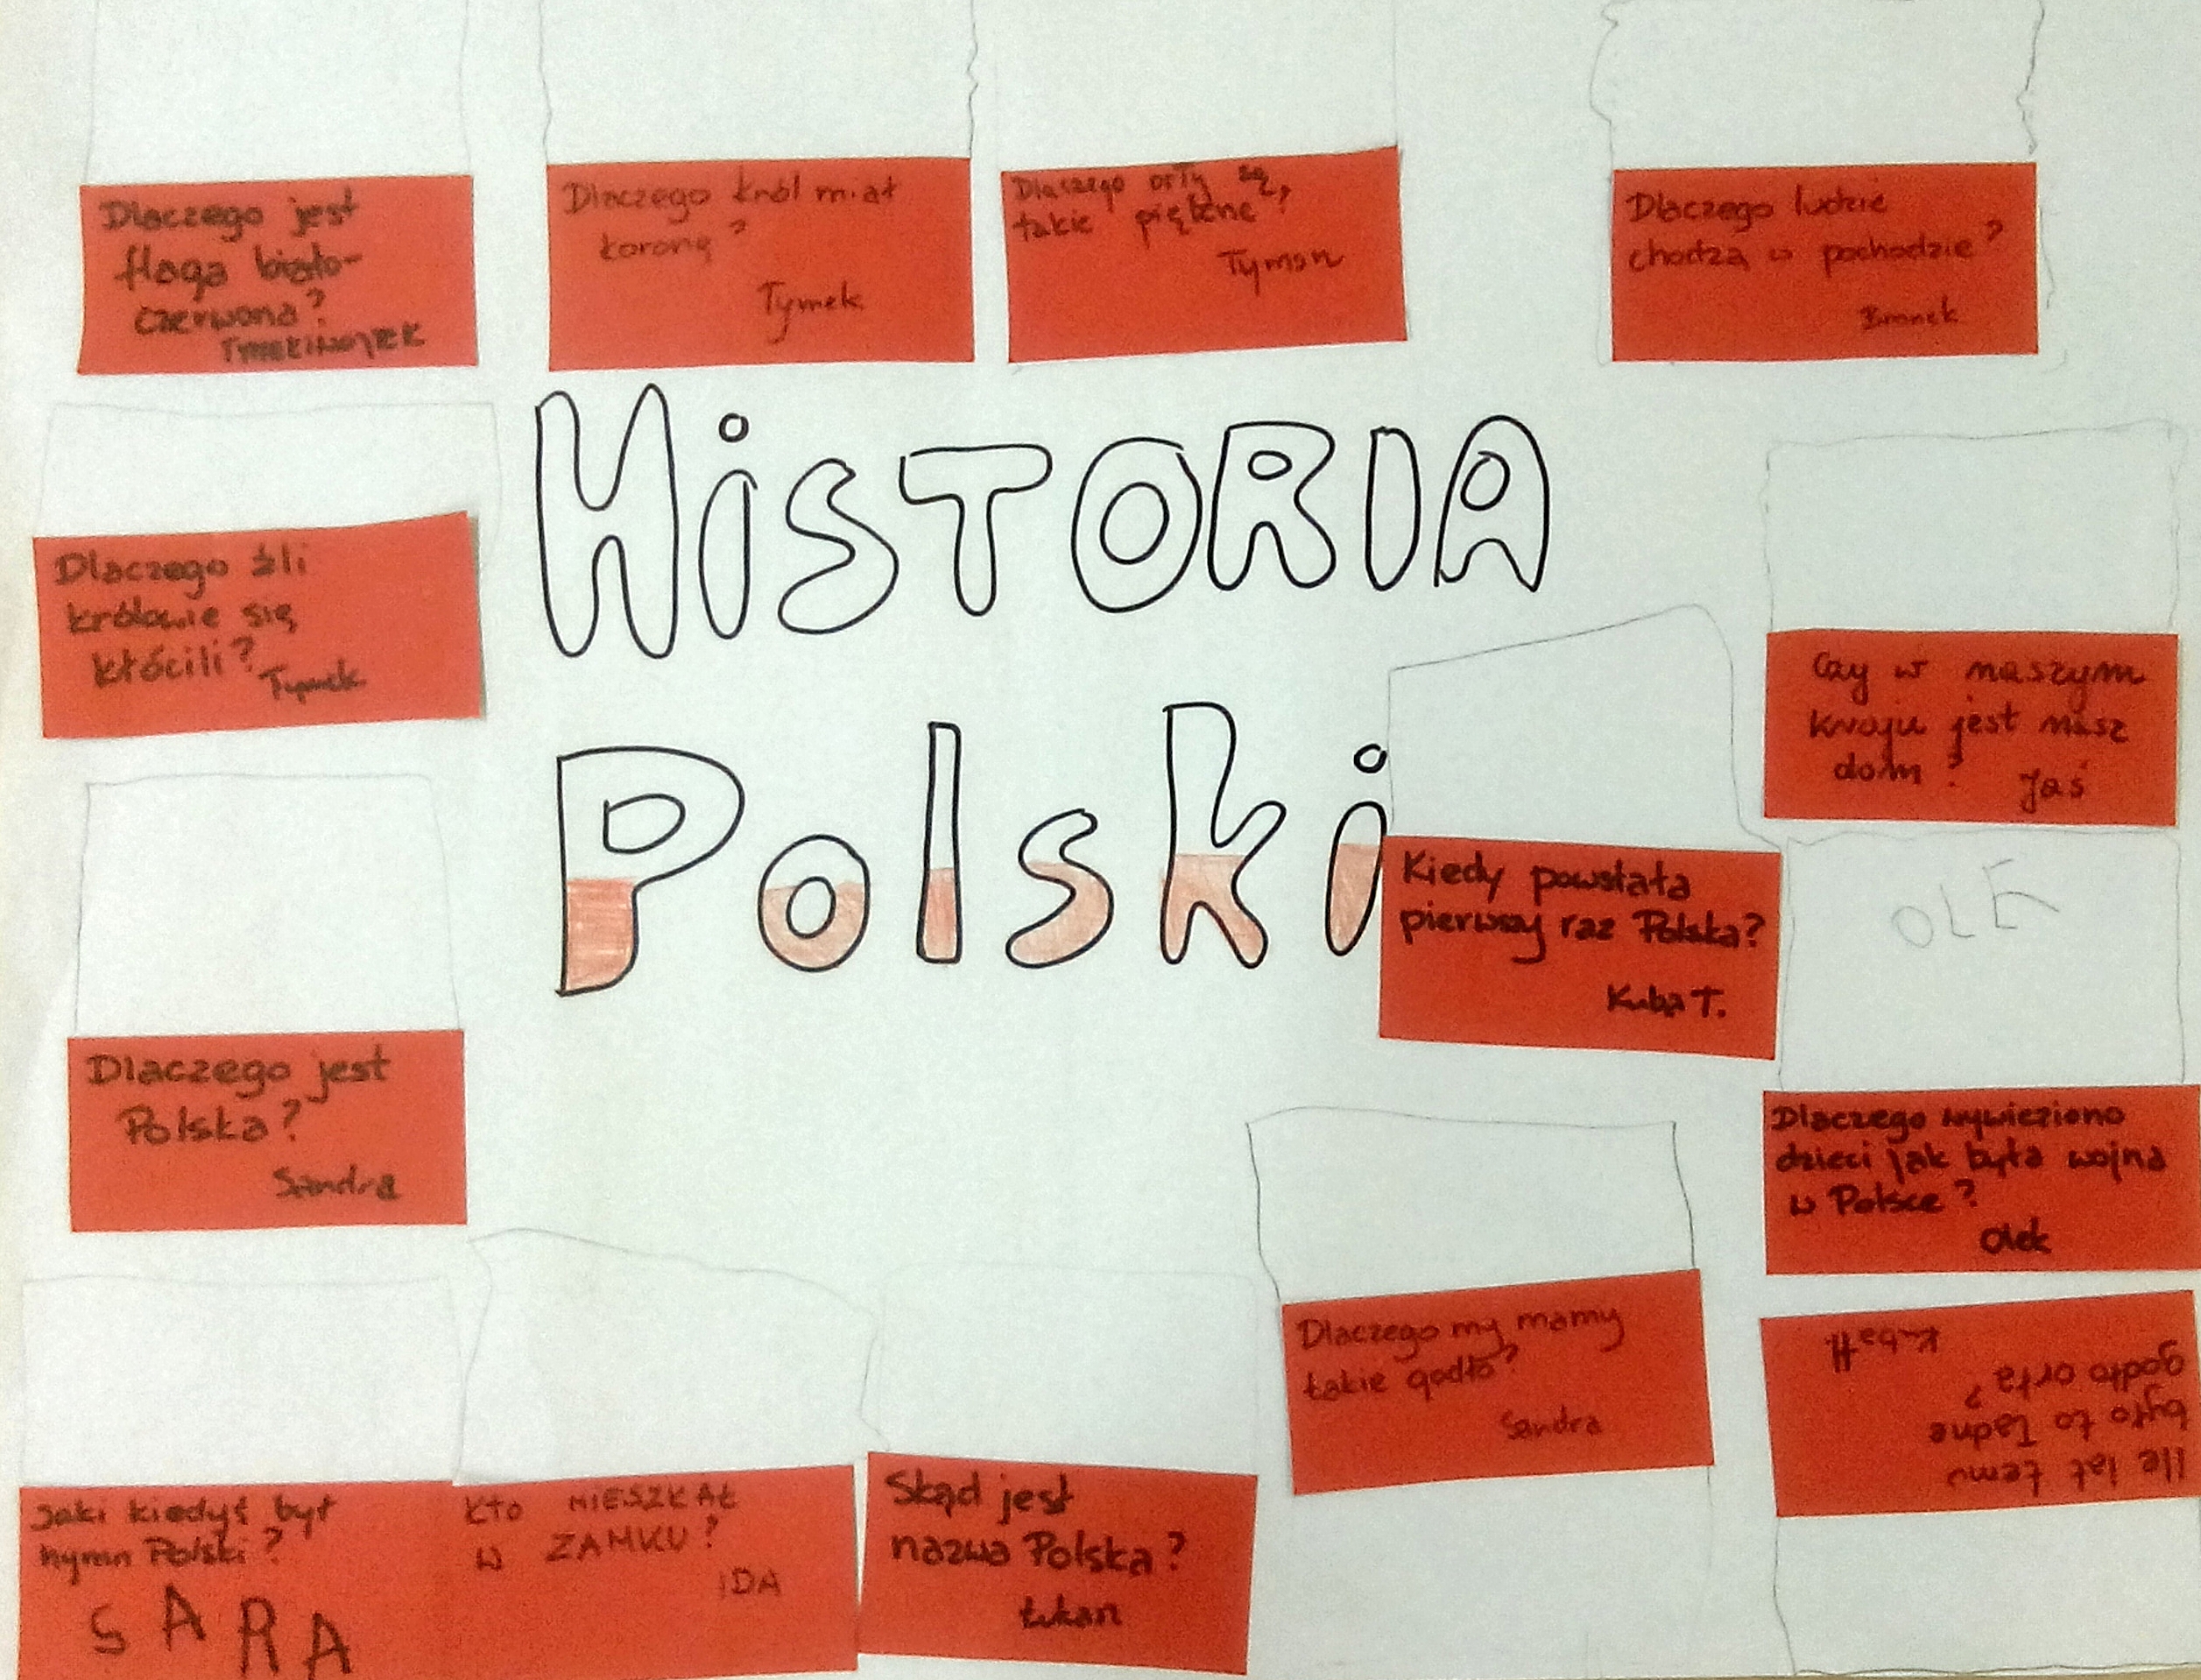 Dlaczego jest
flaga biało-
czerwona?
Dlaczego król miał
koronę?
Tymek
Dlaczego orły są,
takie piękne?
Tymon
Dlaczego ludzie
chodzą w pochodzie?
Bronek
HiSTORIA
Polski
Dlaczego źli
królowie się
kłócili?
Tymek
Czy w naszym
kraju jest nasz
dom?
Jaś
Kiedy powstała
pierwszy raz Polska?
Kuba T.
OLE
Dlaczego jest
Polska?
Sandra
Dlaczego wywieziono
dzieci jak była wojna
w Polsce?
Olek
Dlaczego my mamy
takie godło?
Sandra
Ile lat temu
było to ładne
godło orła?
Kuba H
Jaki kiedyś był
hymn Polski?
SARA
KTO MIESZKAŁ
W ZAMKU?
iDA
Skąd jest
nazwa Polska?